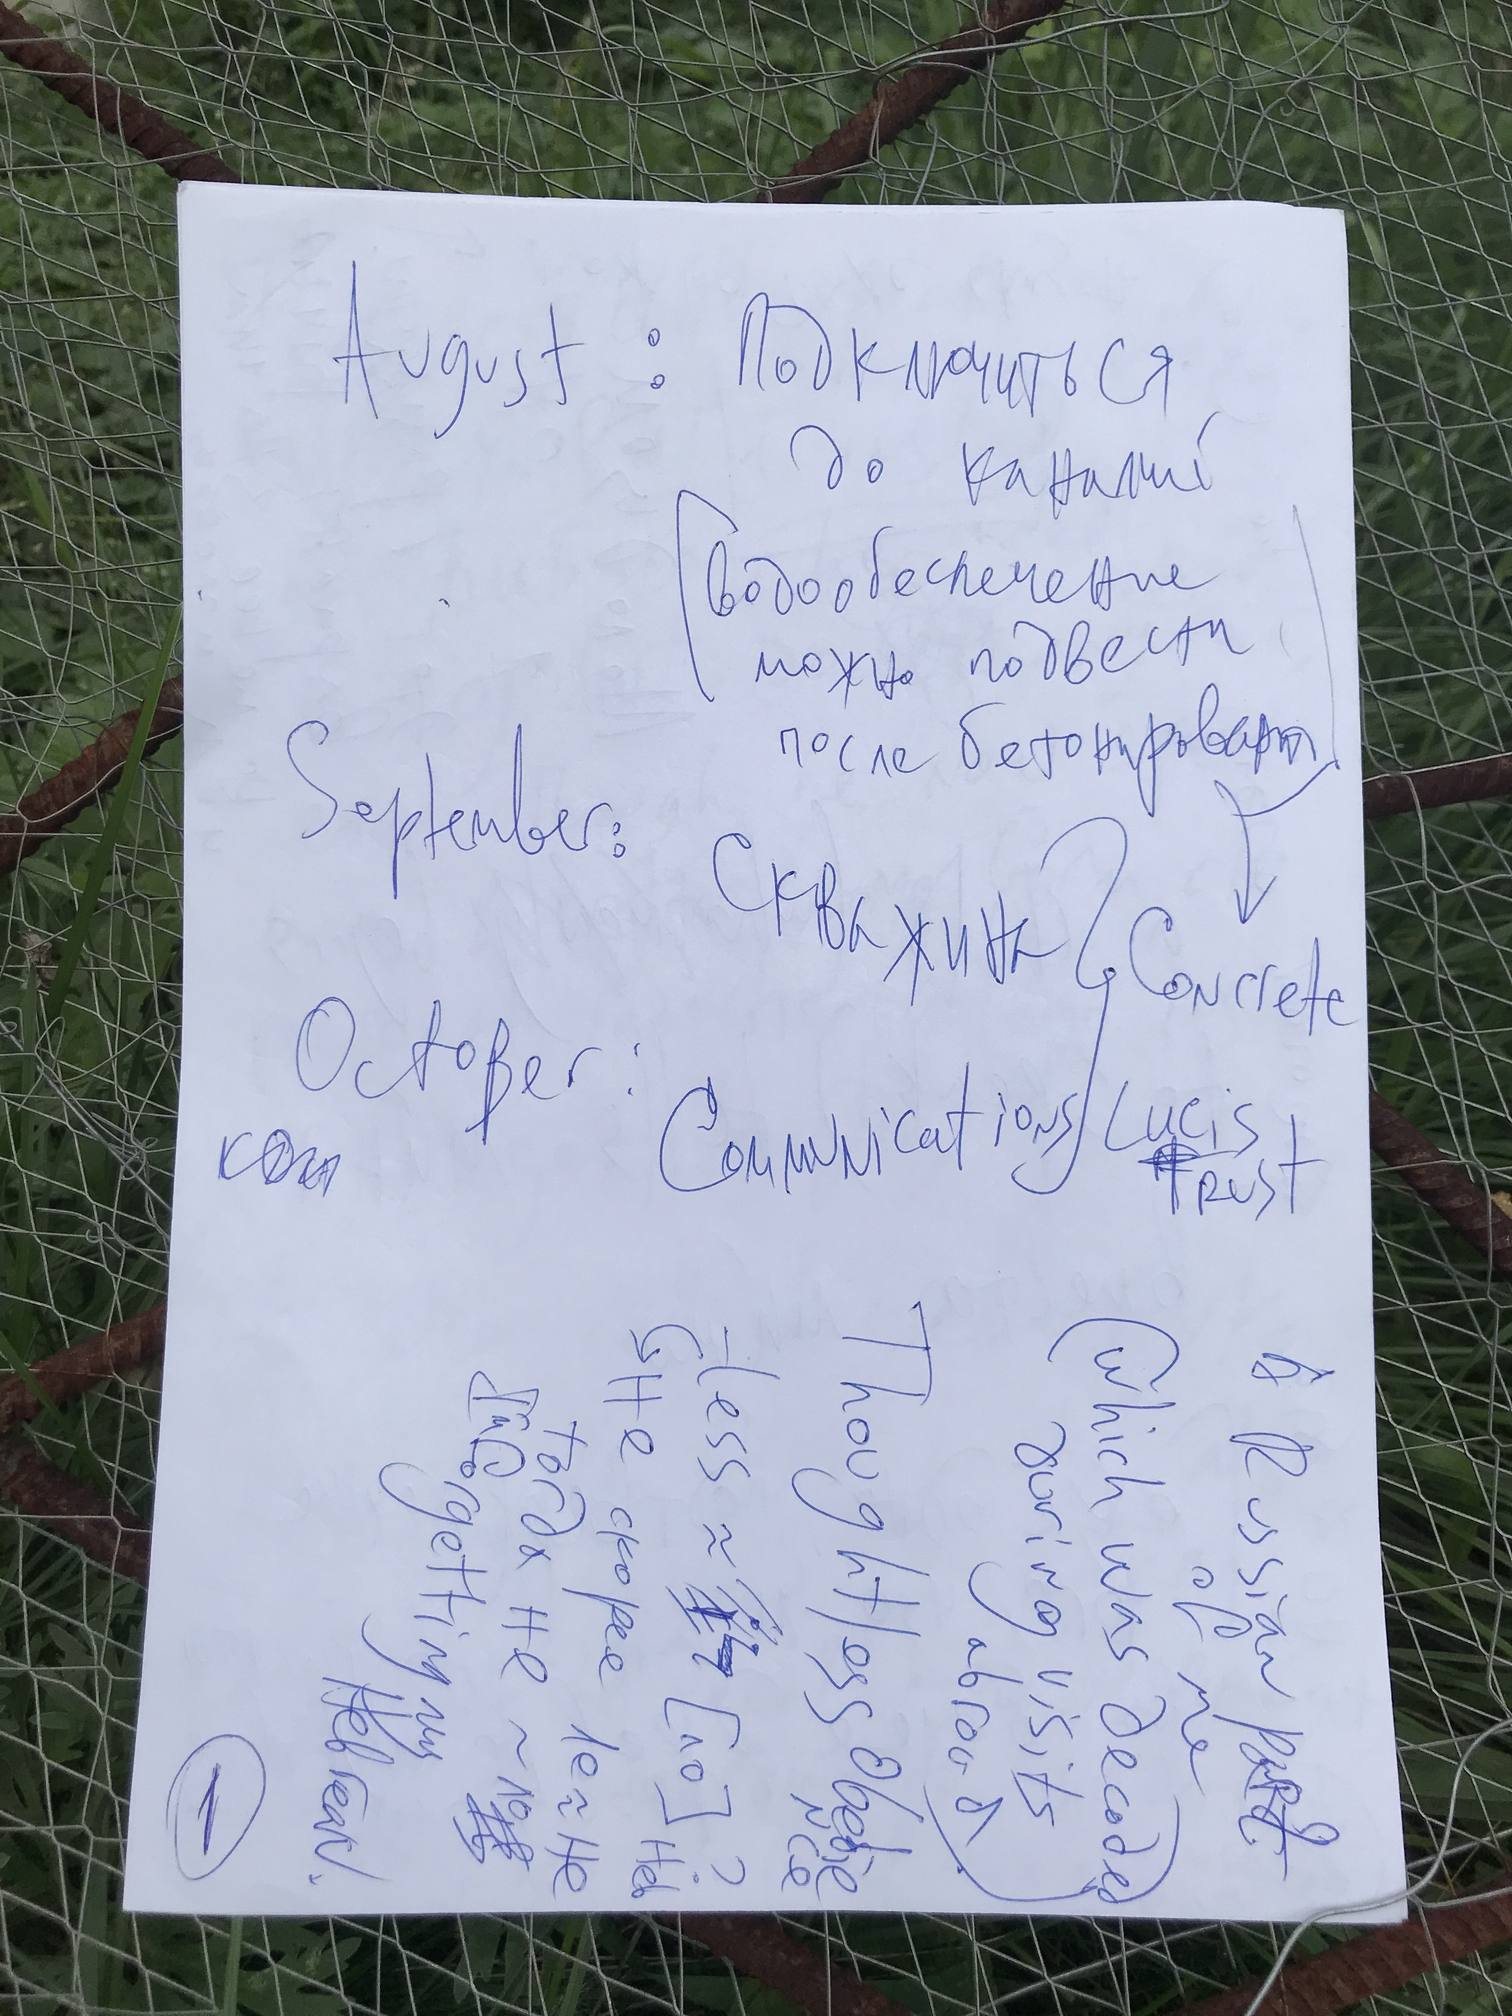 August : Подключиться
до каналії
Водообеспечение
можно подвести
после бетонировании
September:
Скважина
Concrete
October:
Communications Lucis
Trust
A Russian part
of me
(which was decoded
during visits
abroad)
Thoughtless Obedie
nce
-less ≈ [no]?
не скорее
le ≈ не
тогда не ~
getting my
Hebrew.
1